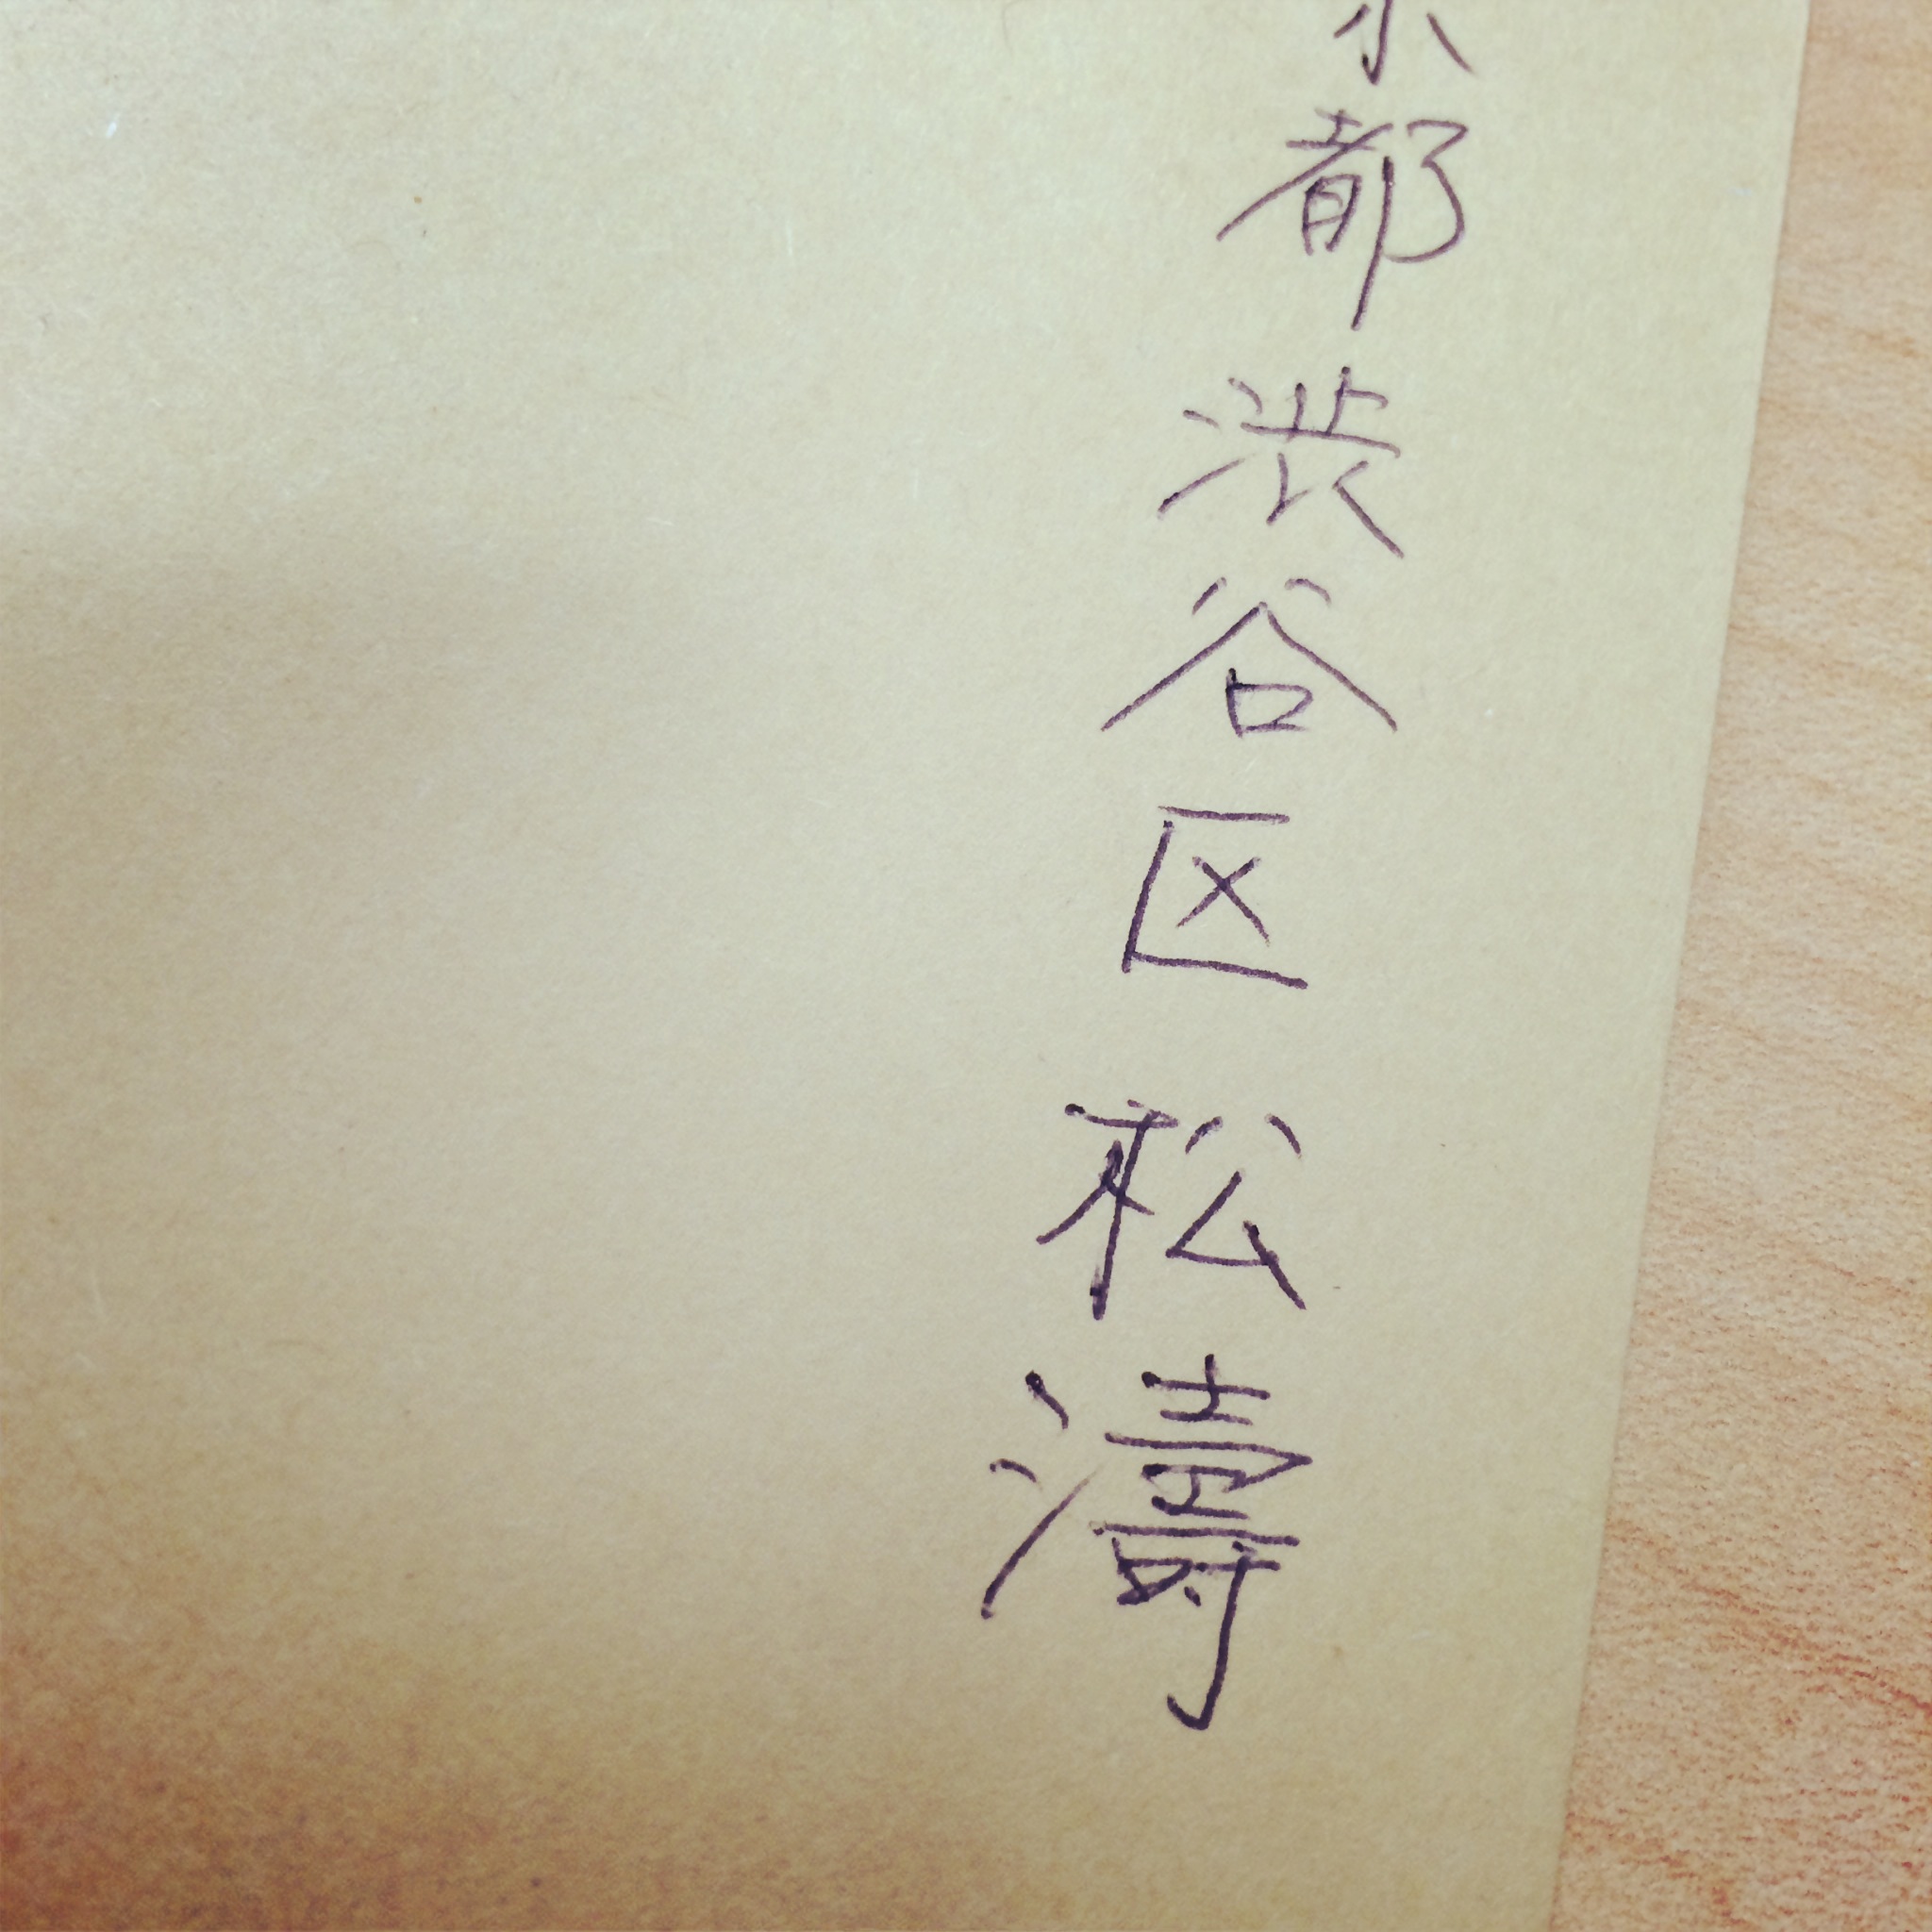 京都渋谷区松濤